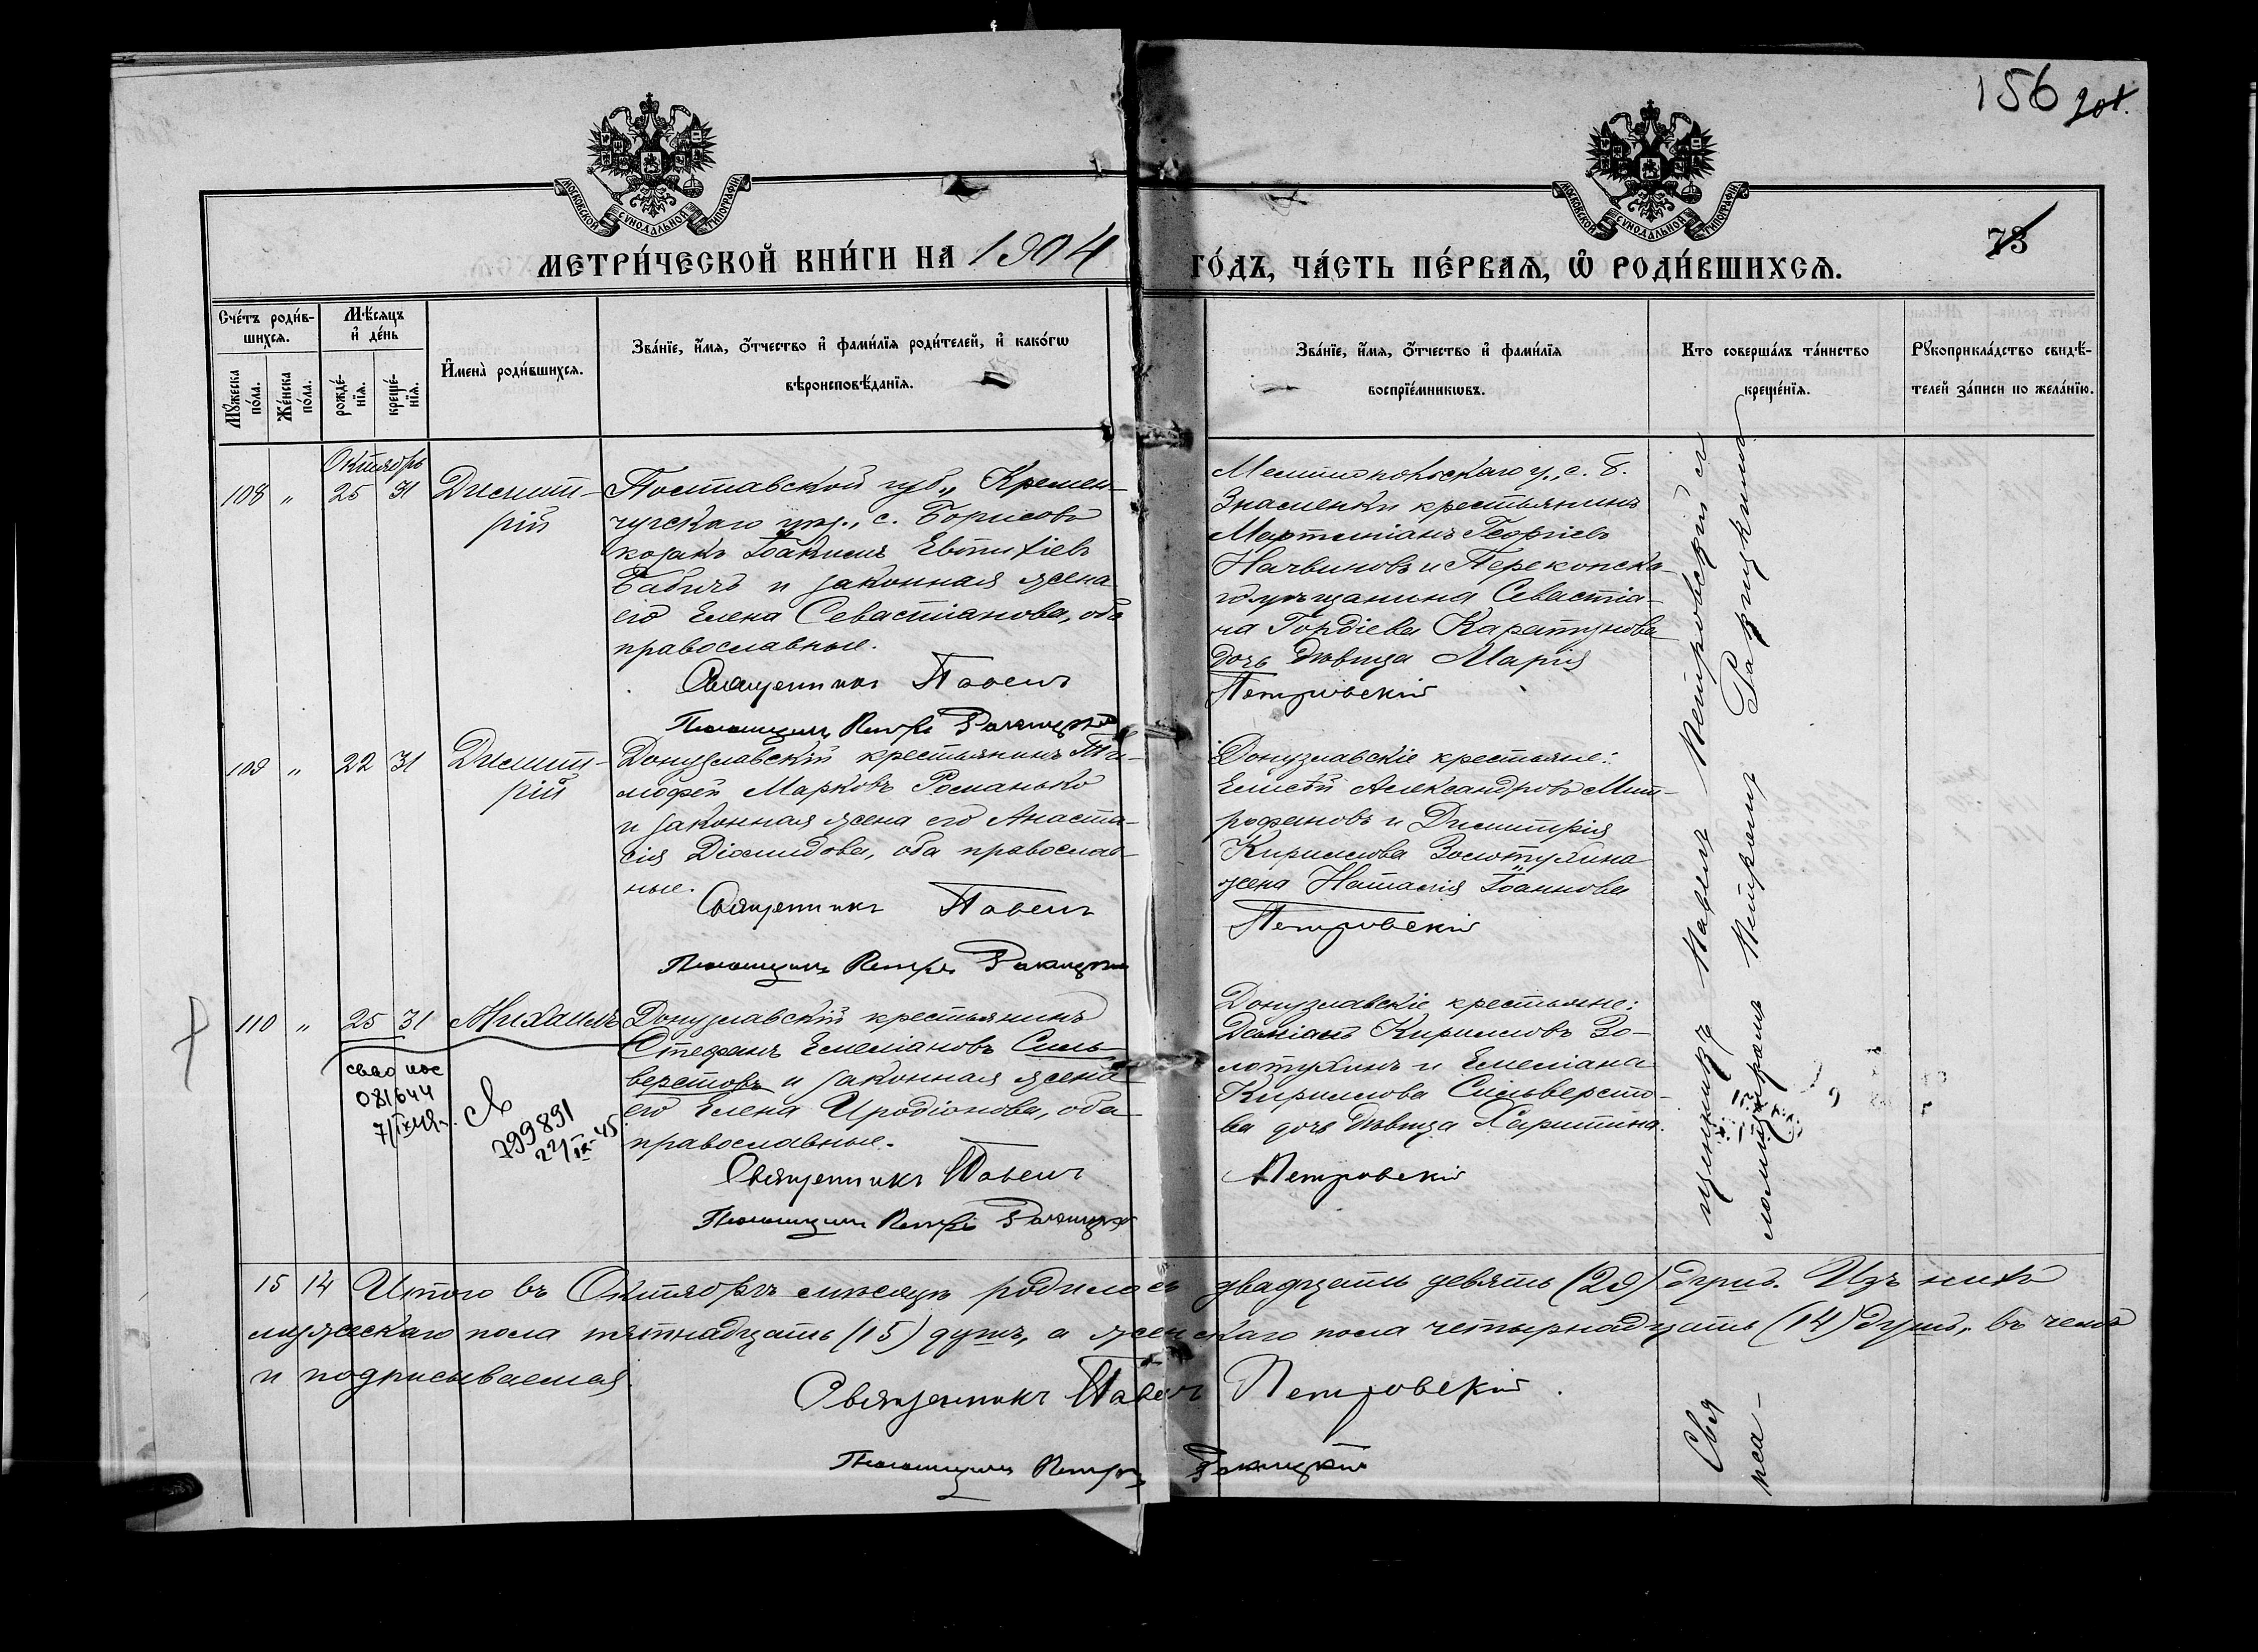 156 201.
МОСКОВСКОЙ СѴНОДАЛЬНОЙ ТИПОГРАФІИ
МОСКОВСКОЙ СѴНОДАЛЬНОЙ ТИПОГРАФІИ
73
МЕТРИ́ЧЕСКОЙ КНИ́ГИ НА 1904 ГО́ДЪ, ЧА́СТЬ ПЕ́РВАЯ, Ѡ РОДИ́ВШИХСЯ.
Сче́тъ роди́в-
шихся.
Му́жеска по́ла.
Же́нска по́ла.
Мѣ́сяцъ и де́нь
рожде́-
нїя.
креще́-
нїя.
Имена̀ роди́вшихся.
Зва́нїе, и́мя, о́тчество и фами́лїя роди́телей, и како́гѡ
вѣроисповѣ́данїя.
Зва́нїе, и́мя, о́тчество и фами́лїя
воспрїе́мникѡвъ.
Кто соверша́лъ та́инство
креще́нїя.
Рукоприкла́дство свидѣ́-
телей за́писи по жела́нїю.
Октябрь
108 " 25 31 Димит-
рій
Полтавской губ., Кремен-
чугскаго уѣз., с. Борисовъ
козакъ Іоакимъ Евтихіевъ
Бабичъ и законная жена
его Елена Севастіанова, оба
православные.
Священникъ Павелъ
Псаломщикъ Петръ Ракицкій
Мелитопольскаго у., с. Б.
Знаменки крестьянинъ
Мартиніанъ Георгіевъ
Начвиновъ и Перекопска-
го мѣщанина Севастіа-
на Гордіева Каратунова
дочь дѣвица Марія
Петровскій
109 " 22 31 Димит-
рій
Донузлавскій крестьянинъ Ти-
мофей Марковъ Романько
и законная жена его Анаста-
сія Діомидова, оба православ-
ные.
Священникъ Павелъ
Псаломщикъ Петръ Ракицкій
Донузлавскіе крестьяне:
Елисѣй Александровъ Мит-
рофановъ и Димитрія
Кириллова Золотухина
жена Наталія Іоаннова
Петровскій
110 " 25 31 Михаилъ
Донузлавскій крестьянинъ
Стефанъ Емеліановъ Силь-
верстовъ и законная жена
его Елена Иродіонова, оба
православные.
Священникъ Павелъ
Псаломщикъ Петръ Ракицкій
081644
799891
Донузлавскіе крестьяне:
Даміанъ Кирилловъ Зо-
лотухинъ и Емеліана
Кириллова Сильверсто-
ва дочь дѣвица Харитина.
Петровскій
Священникъ Павелъ Петровскій съ
псаломщикомъ Петромъ Ракицкимъ
15 14 Итого въ Октябрѣ мѣсяцѣ родилось двадцать девять (29) душъ. Изъ нихъ
мужескаго пола пятнадцать (15) душъ, а женскаго пола четырнадцать (14) душъ, въ чемъ
и подписываемся
Священникъ Павелъ Петровскій.
Псаломщикъ Петръ Ракицкій